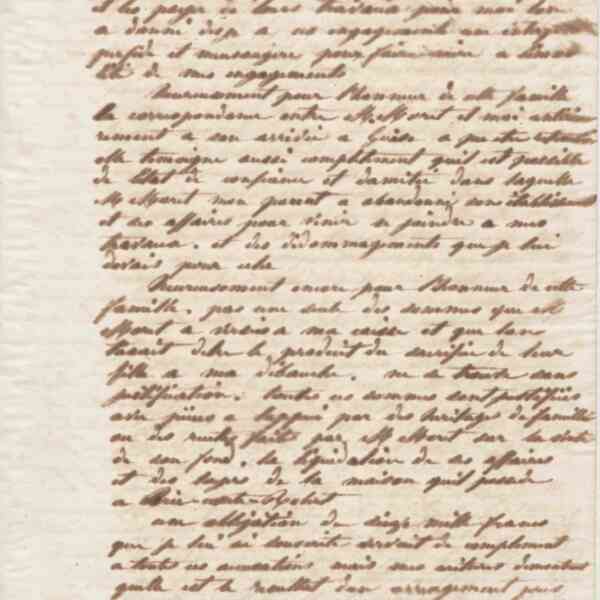 et les payer de leurs travaux
a donné lieu a ces engagements un
perfide et mensongère pour faire croire a
de mes engagements
heureusement pour l'honneur de cette famille
la correspondance entre M. Moret et moi
rement a son arrivée a Guise a
elle temoigne aussi complétement qu'il est possible
de l'état de confiance et d'amitié dans laquelle
M Moret mon parent a abandonné son établissement
et ses affaires pour venir se joindre a mes
travaux. et des dédommagements que je lui
devais pour cela
heureusement encore pour l'honneur de cette
famille, pas une seule des sommes que M
Moret a versées a ma caisse et que l'on
dit être le produit du sacrifice de leur
fille a ma débauche. ne se trouve sans
justification. toutes ces sommes sont justifiées
avec pièces a l'appui par des héritages de famille
ou des faits par M Moret sur la vente
de son fond, la liquidation de ses affaires
et des de la maison qu'il possede
a Brie-comte-Robert
une obligation de mille francs
que je lui ai souscrite servait de complement
a toutes ces accusations mais mes écritures démontrent
qu'elle est le resultat d'un arrangement pour